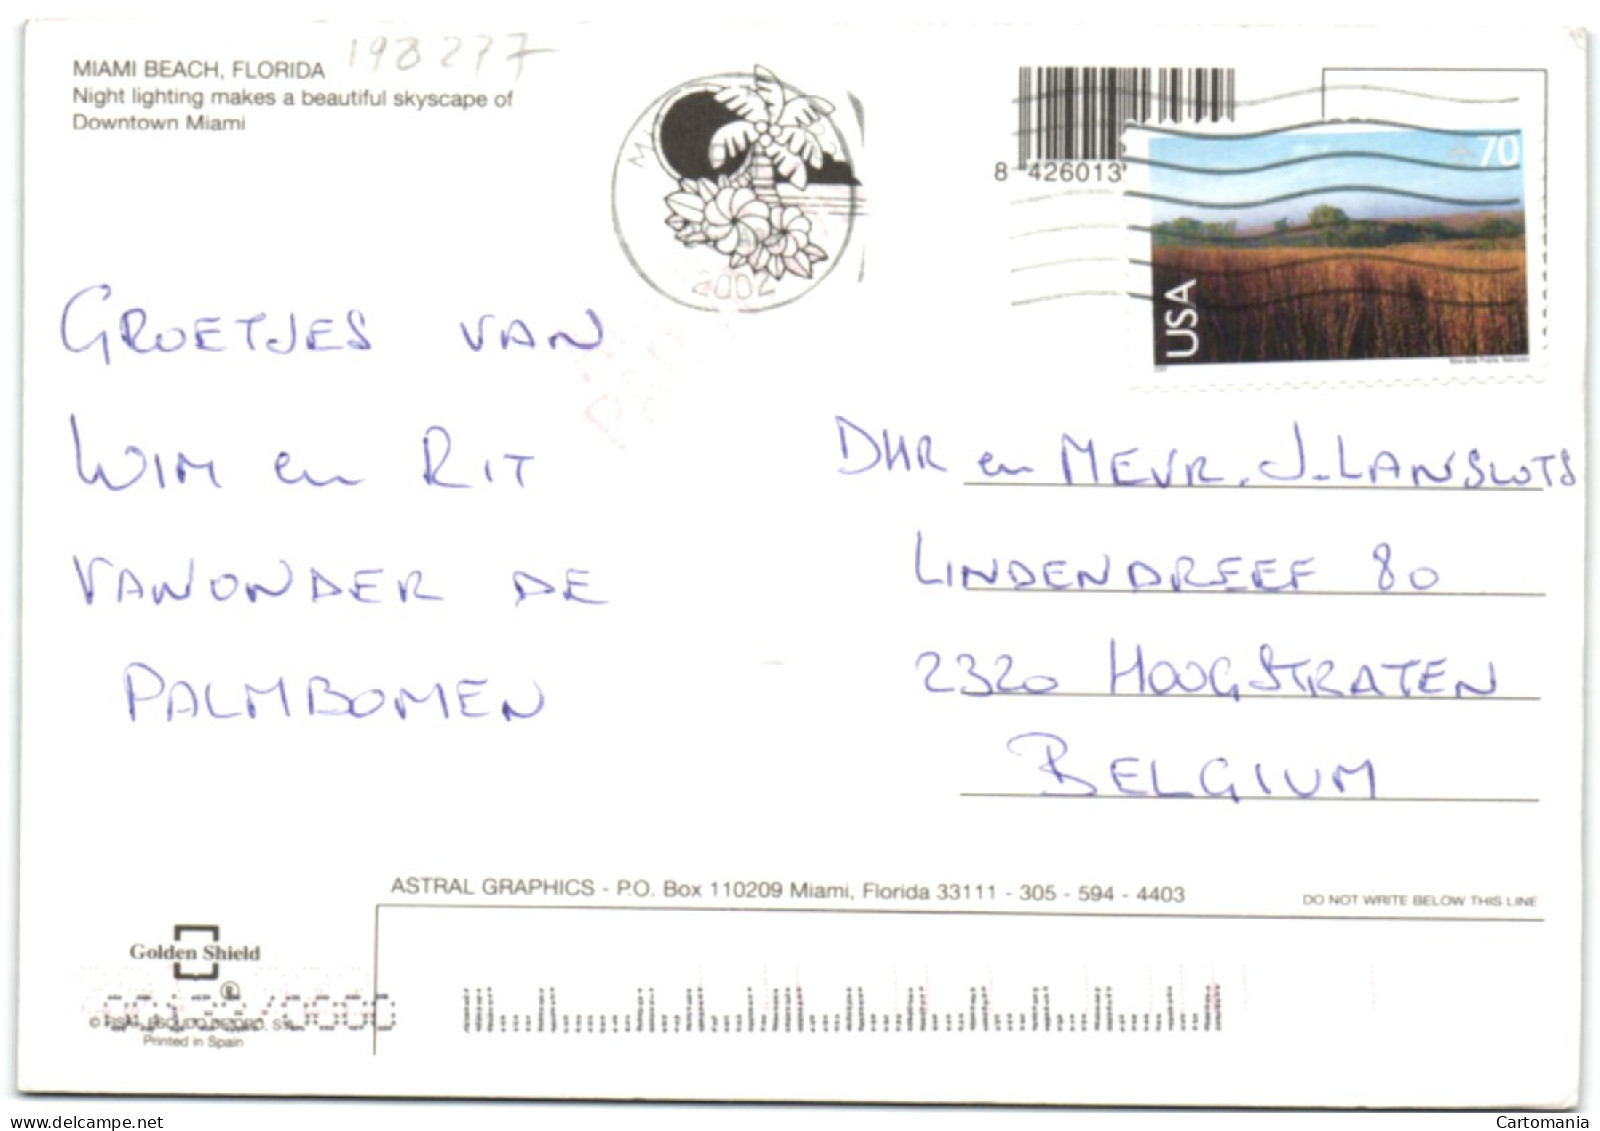 198277
MIAMI BEACH, FLORIDA
Night lighting makes a beautiful skyscape of
Downtown Miami
2002
8 426013
70
USA
GROETJES VAN
WIM en RIT
VANONDER DE
PALMBOMEN
DHR en MEVR. J. LANSLOTS
LINDENDREEF 80
2320 HOOGSTRATEN
BELGIUM
ASTRAL GRAPHICS - P.O. Box 110209 Miami, Florida 33111 - 305 - 594 - 4403
DO NOT WRITE BELOW THIS LINE
Golden Shield
®
Printed in Spain
Cartomania